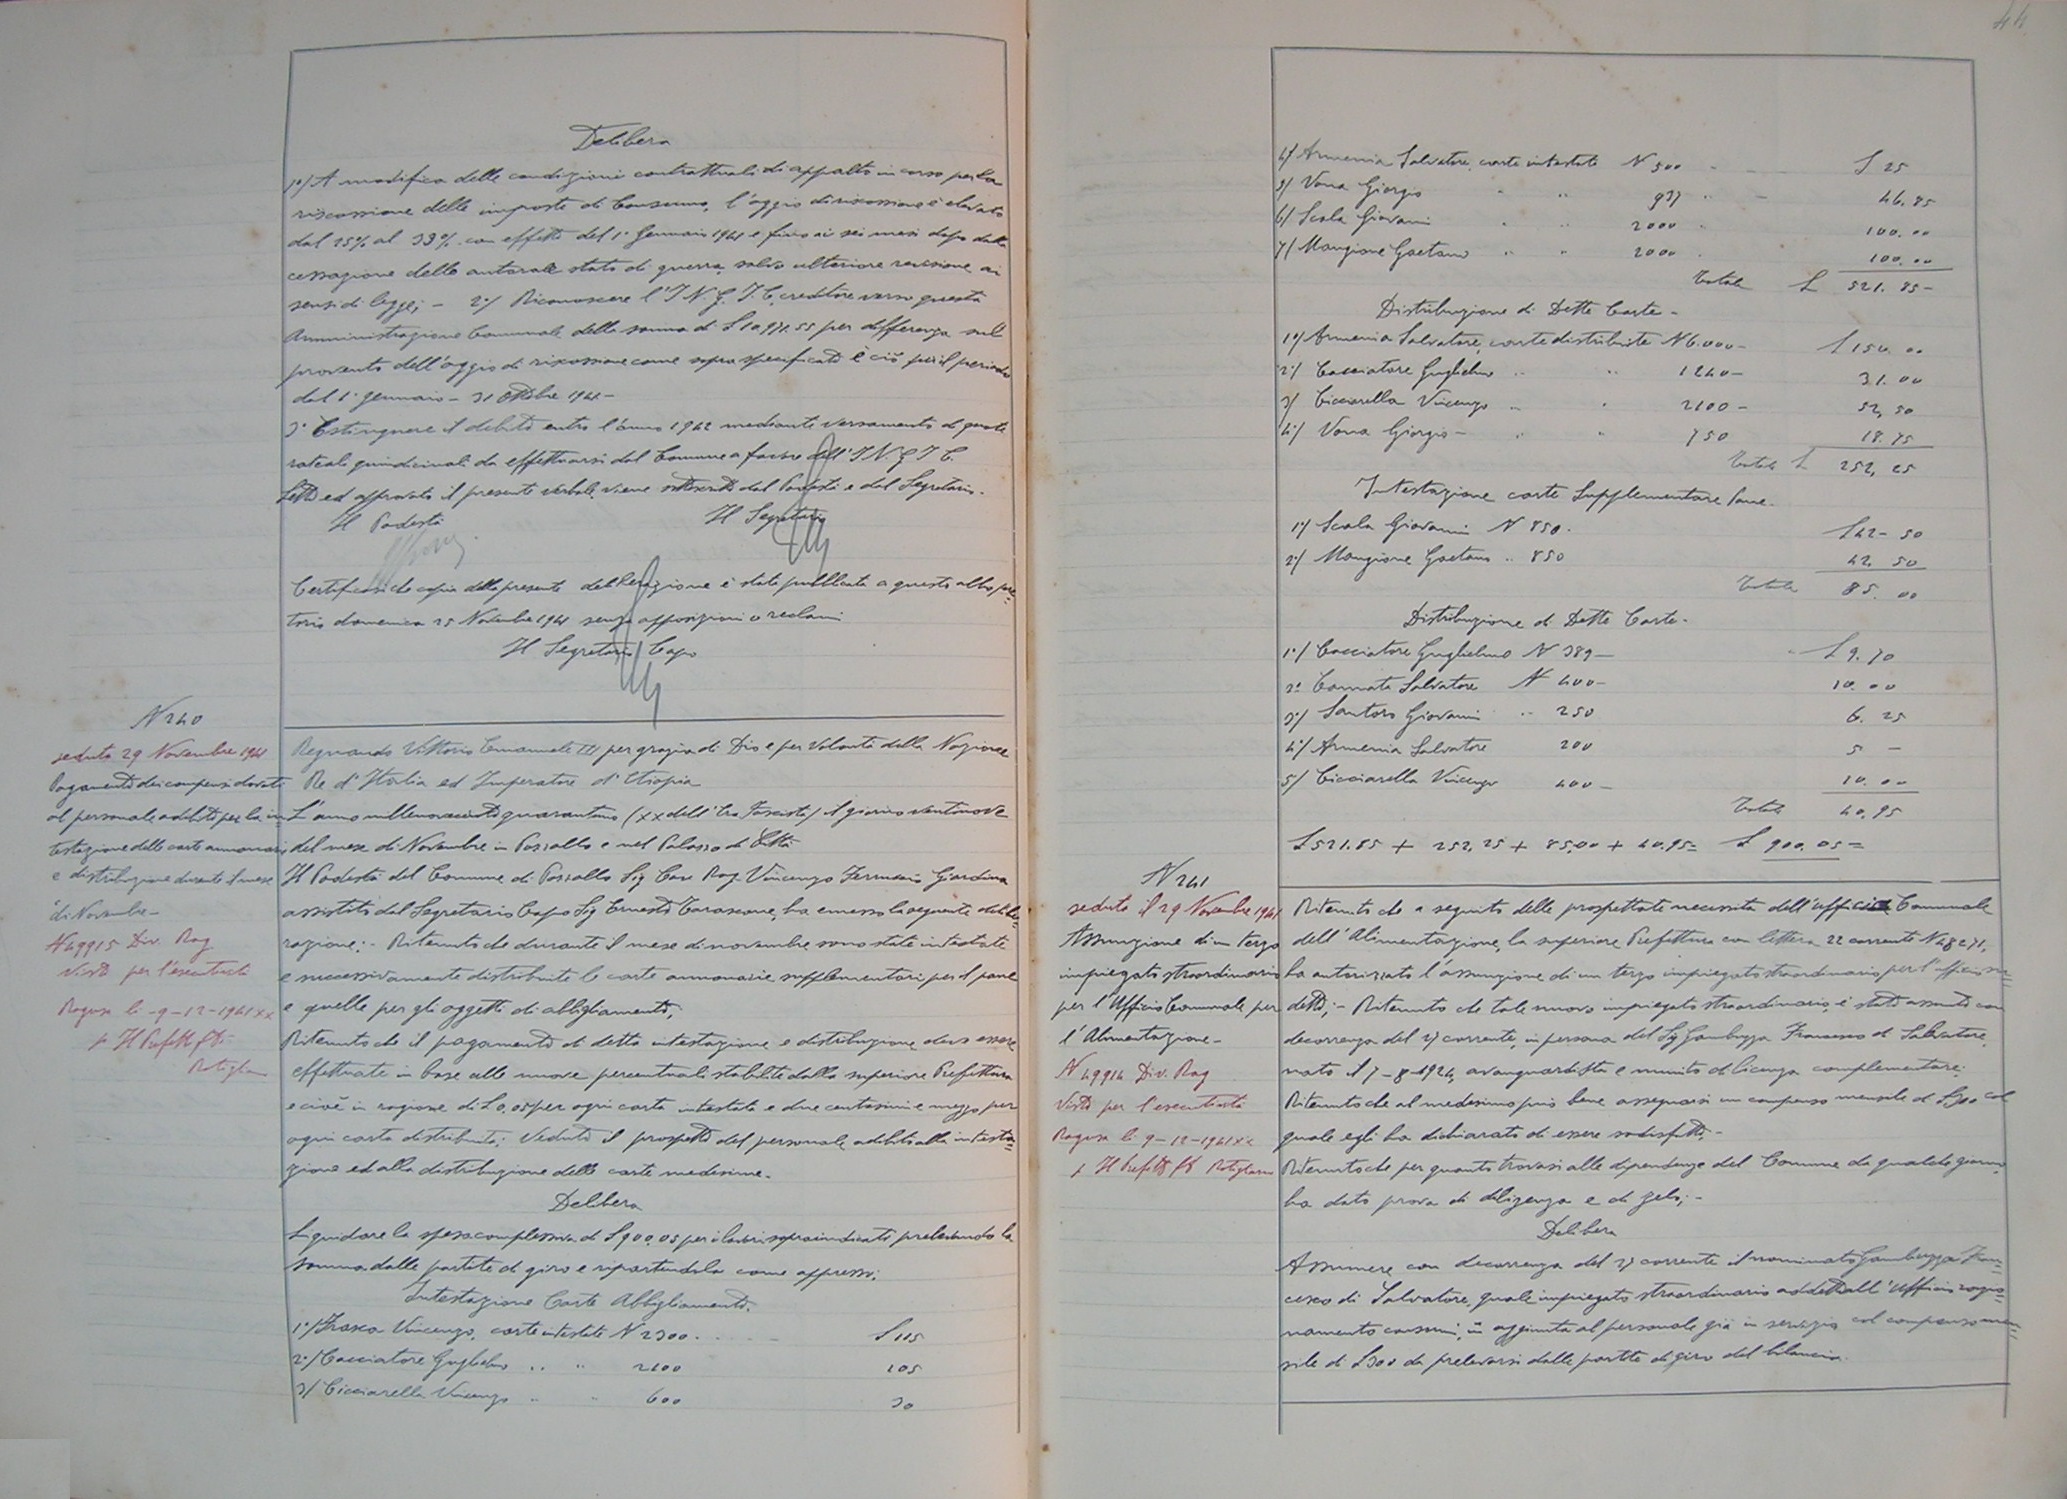 Delibera
1°/ A modifica delle condizioni contrattuali di appalto in corso per la
riscossione delle imposte di Consumo, l'aggio di riscossione è elevato
dal 25% al 33% con effetto del 1° Gennaio 1941 e fino ai sei mesi dopo della
cessazione dello attuale stato di guerra, salvo ulteriore revisione ai
sensi di legge; - 2°/ Riconoscere l'I.N.G.I.C. creditore verso questa
Amministrazione Comunale della somma di £ 10.971.55 per differenza sul
provento dell'aggio di riscossione come sopra specificato e ciò per il periodo
dal 1° gennaio - 31 Ottobre 1941 -
3° Estinguere il debito entro l'anno 1942 mediante versamento di quote
rateali quindicinali da effettuarsi dal Comune a favore dell'I.N.G.I.C.
Letto ed approvato il presente verbale, viene sottoscritto dal Podestà e dal Segretario.
Il Podestà Il Segretario
Certificasi che copia della presente deliberazione è stata pubblicata a questo albo pre=
torio domenica 25 Novembre 1941 senza opposizioni o reclami
Il Segretario Capo
N 240
seduta 29 Novembre 1941
Pagamento dei compensi dovuti
al personale adibito per la in=
testazione delle carte annonarie
e distribuzione durante il mese
di Novembre -
N 49915 Div. Rag
Visto per l'esecutività
Ragusa lì - 9 - 12 - 1941 XX
p Il Prefetto fto
Regnando Vittorio Emanuele III per grazia di Dio e per Volontà della Nazione
Re d'Italia ed Imperatore d'Etiopia
L'anno millenovecentoquarantuno (XX dell'Era Fascista) il giorno ventinove
del mese di Novembre in Pozzallo e nel Palazzo di Città
Il Podestà del Comune di Pozzallo Sig Cav Rag. Vincenzo Ferruccio Giardina
assistito dal Segretario Capo Sig Ernesto Carascone, ha emesso la seguente delibe=
razione: - Ritenuto che durante il mese di novembre sono state intestate
e successivamente distribuite le carte annonarie supplementari per il pane
e quelle per gli oggetti di abbigliamento;
Ritenuto che il pagamento di detta intestazione e distribuzione deve essere
effettuato in base alle nuove percentuali stabilite dalla superiore Prefettura
e cioè in ragione di £ 0,05 per ogni carta intestata e due centesimi e mezzo per
ogni carta distribuita; Veduto il prospetto del personale adibito alla intesta=
zione ed alla distribuzione delle carte medesime.
Delibera
Liquidare la spesa complessiva di £ 900,05 per i lavori sopraindicati prelevando la
somma dalle partite di giro e ripartendola come appresso:
Intestazione Carte Abbigliamento.
1°/ Frasca Vincenzo, carte intestate N 2300 . . . . £ 115
2°/ Cacciatore Guglielmo " " 2100 105
3/ Cicciarella Vincenzo " " 600 30
44
4/ Armenia Salvatore, carte intestate N 500 - £ 25
5/ Vona Giorgio " " 937 " - 46.85
6/ Scala Giovanni " " 2000 100.00
7/ Mangione Gaetano " " 2000 100.00
Totale £ 521.85 -
Distribuzione di Dette Carte -
1°/ Armenia Salvatore, carte distribuite N 6.000 - £ 150.00
2°/ Cacciatore Guglielmo " " 1240 - 31.00
3/ Cicciarella Vincenzo " " 2100 - 52,50
4°/ Vona Giorgio - " " 750 18.75
Totale £ 252,25
Intestazione carte Supplementare Pane.
1°/ Scala Giovanni N 850. £ 42 - 50
2°/ Mangione Gaetano " 850 42. 50
Totale 85.00
Distribuzione di Dette Carte -
1°/ Cacciatore Guglielmo N 389 - £ 9.70
2° Cannata Salvatore N 400 - 10.00
3°/ Santoro Giovanni " 250 6. 25
4°/ Armenia Salvatore 200 5 -
5/ Cicciarella Vincenzo 400 - 10.00
Totale 40,95
£ 521.85 + 252,25 + 85,00 + 40.95 = £ 900,05 =
N 241
seduta il 29 Novembre 1941
Assunzione di un terzo
impiegato straordinario
per l'Ufficio Comunale per
l'Alimentazione -
N 49914 Div. Rag
Visto per l'esecutività
Ragusa lì 9 - 12 - 1941 XX
p Il Prefetto fto
Ritenuto che a seguito delle prospettate necessità dell'ufficio Comunale
dell'Alimentazione, la superiore Prefettura con lettera 22 corrente N 48271,
ha autorizzato l'assunzione di un terzo impiegato straordinario per l'ufficio su=
detto; - Ritenuto che tale nuovo impiegato straordinario, è stato assunto con
decorrenza del 27 corrente, in persona del Sig Gambuzza Francesco di Salvatore,
nato il 7 - 8 - 1924, avanguardista e munito di licenza complementare;
Ritenuto che al medesimo può bene assegnarsi un compenso mensile di £ 300 col
quale egli ha dichiarato di essere sodisfatto, -
Ritenuto che per quanto trovasi alle dipendenze del Comune da qualche giorno,
ha dato prova di diligenza e di zelo; -
Delibera
Assumere con decorrenza del 27 corrente il nominato Gambuzza Fran=
cesco di Salvatore, quale impiegato straordinario addetto all'Ufficio razio=
namento consumi, in aggiunta al personale già in servizio col compenso men=
sile di £ 300 da prelevarsi dalle partite di giro del bilancio.